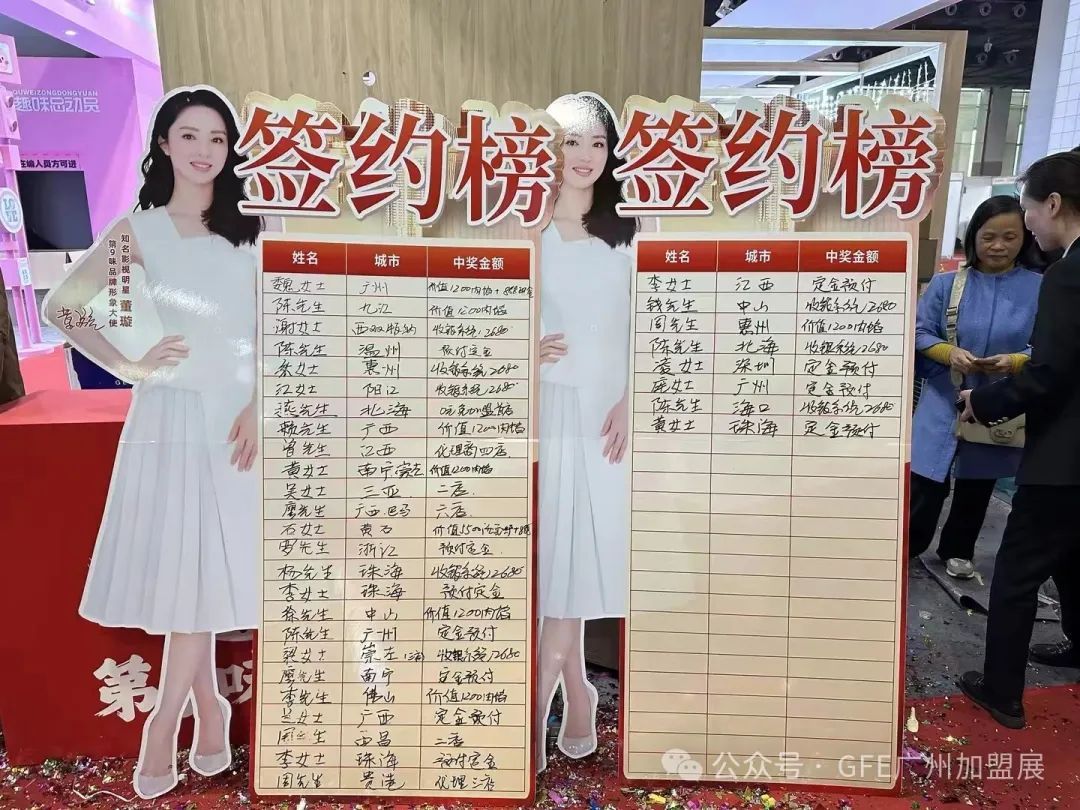 QUWEIZONGDONGYUAN
趣味总动员
在编人员方可进
知名影视明星 董璇
第9味品牌形象大使
签约榜
姓名 城市 中奖金额
魏女士 广州 价值1200内
陈先生 九江 价值1200内
谢女士 西双版纳 收银系统,2680
陈先生 温州 预付定金
朱女士 惠州 收银系统2680
江女士 阳江 收银系统,2680
燕先生 北海 0元加盟首店
赖先生 广西 价值1200内
曾先生 江西 代理商四店
黄女士 南宁崇左 价值1200内
吴女士 三亚 二店.
廖先生 广西.巴马 六店
石女士 黄石
罗先生 浙江 预付定金
杨先生 珠海 收银系统2680
李女士 珠海 预付定金
徐先生 中山 价值1200内
陈先生 广州 定金预付
梁女士 崇左 收银系统2680
廖先生 南宁 定金预付
李先生 佛山 价值1200内
兰女士 广西 定金预付
周先生 西昌 二店
李女士 珠海 预付定金
周先生 贵港 代理三店
签约榜
姓名 城市 中奖金额
李女士 江西 定金预付
钱先生 中山 收银系统,2680
周先生 惠州 价值1200内
陈先生 北海 收银系统2680
凌女士 深圳 定金预付
庞女士 广州 定金预付
陈先生 海口 收银系统2680
黄女士 珠海 定金预付
第
味
公众号·GFE广州加盟展